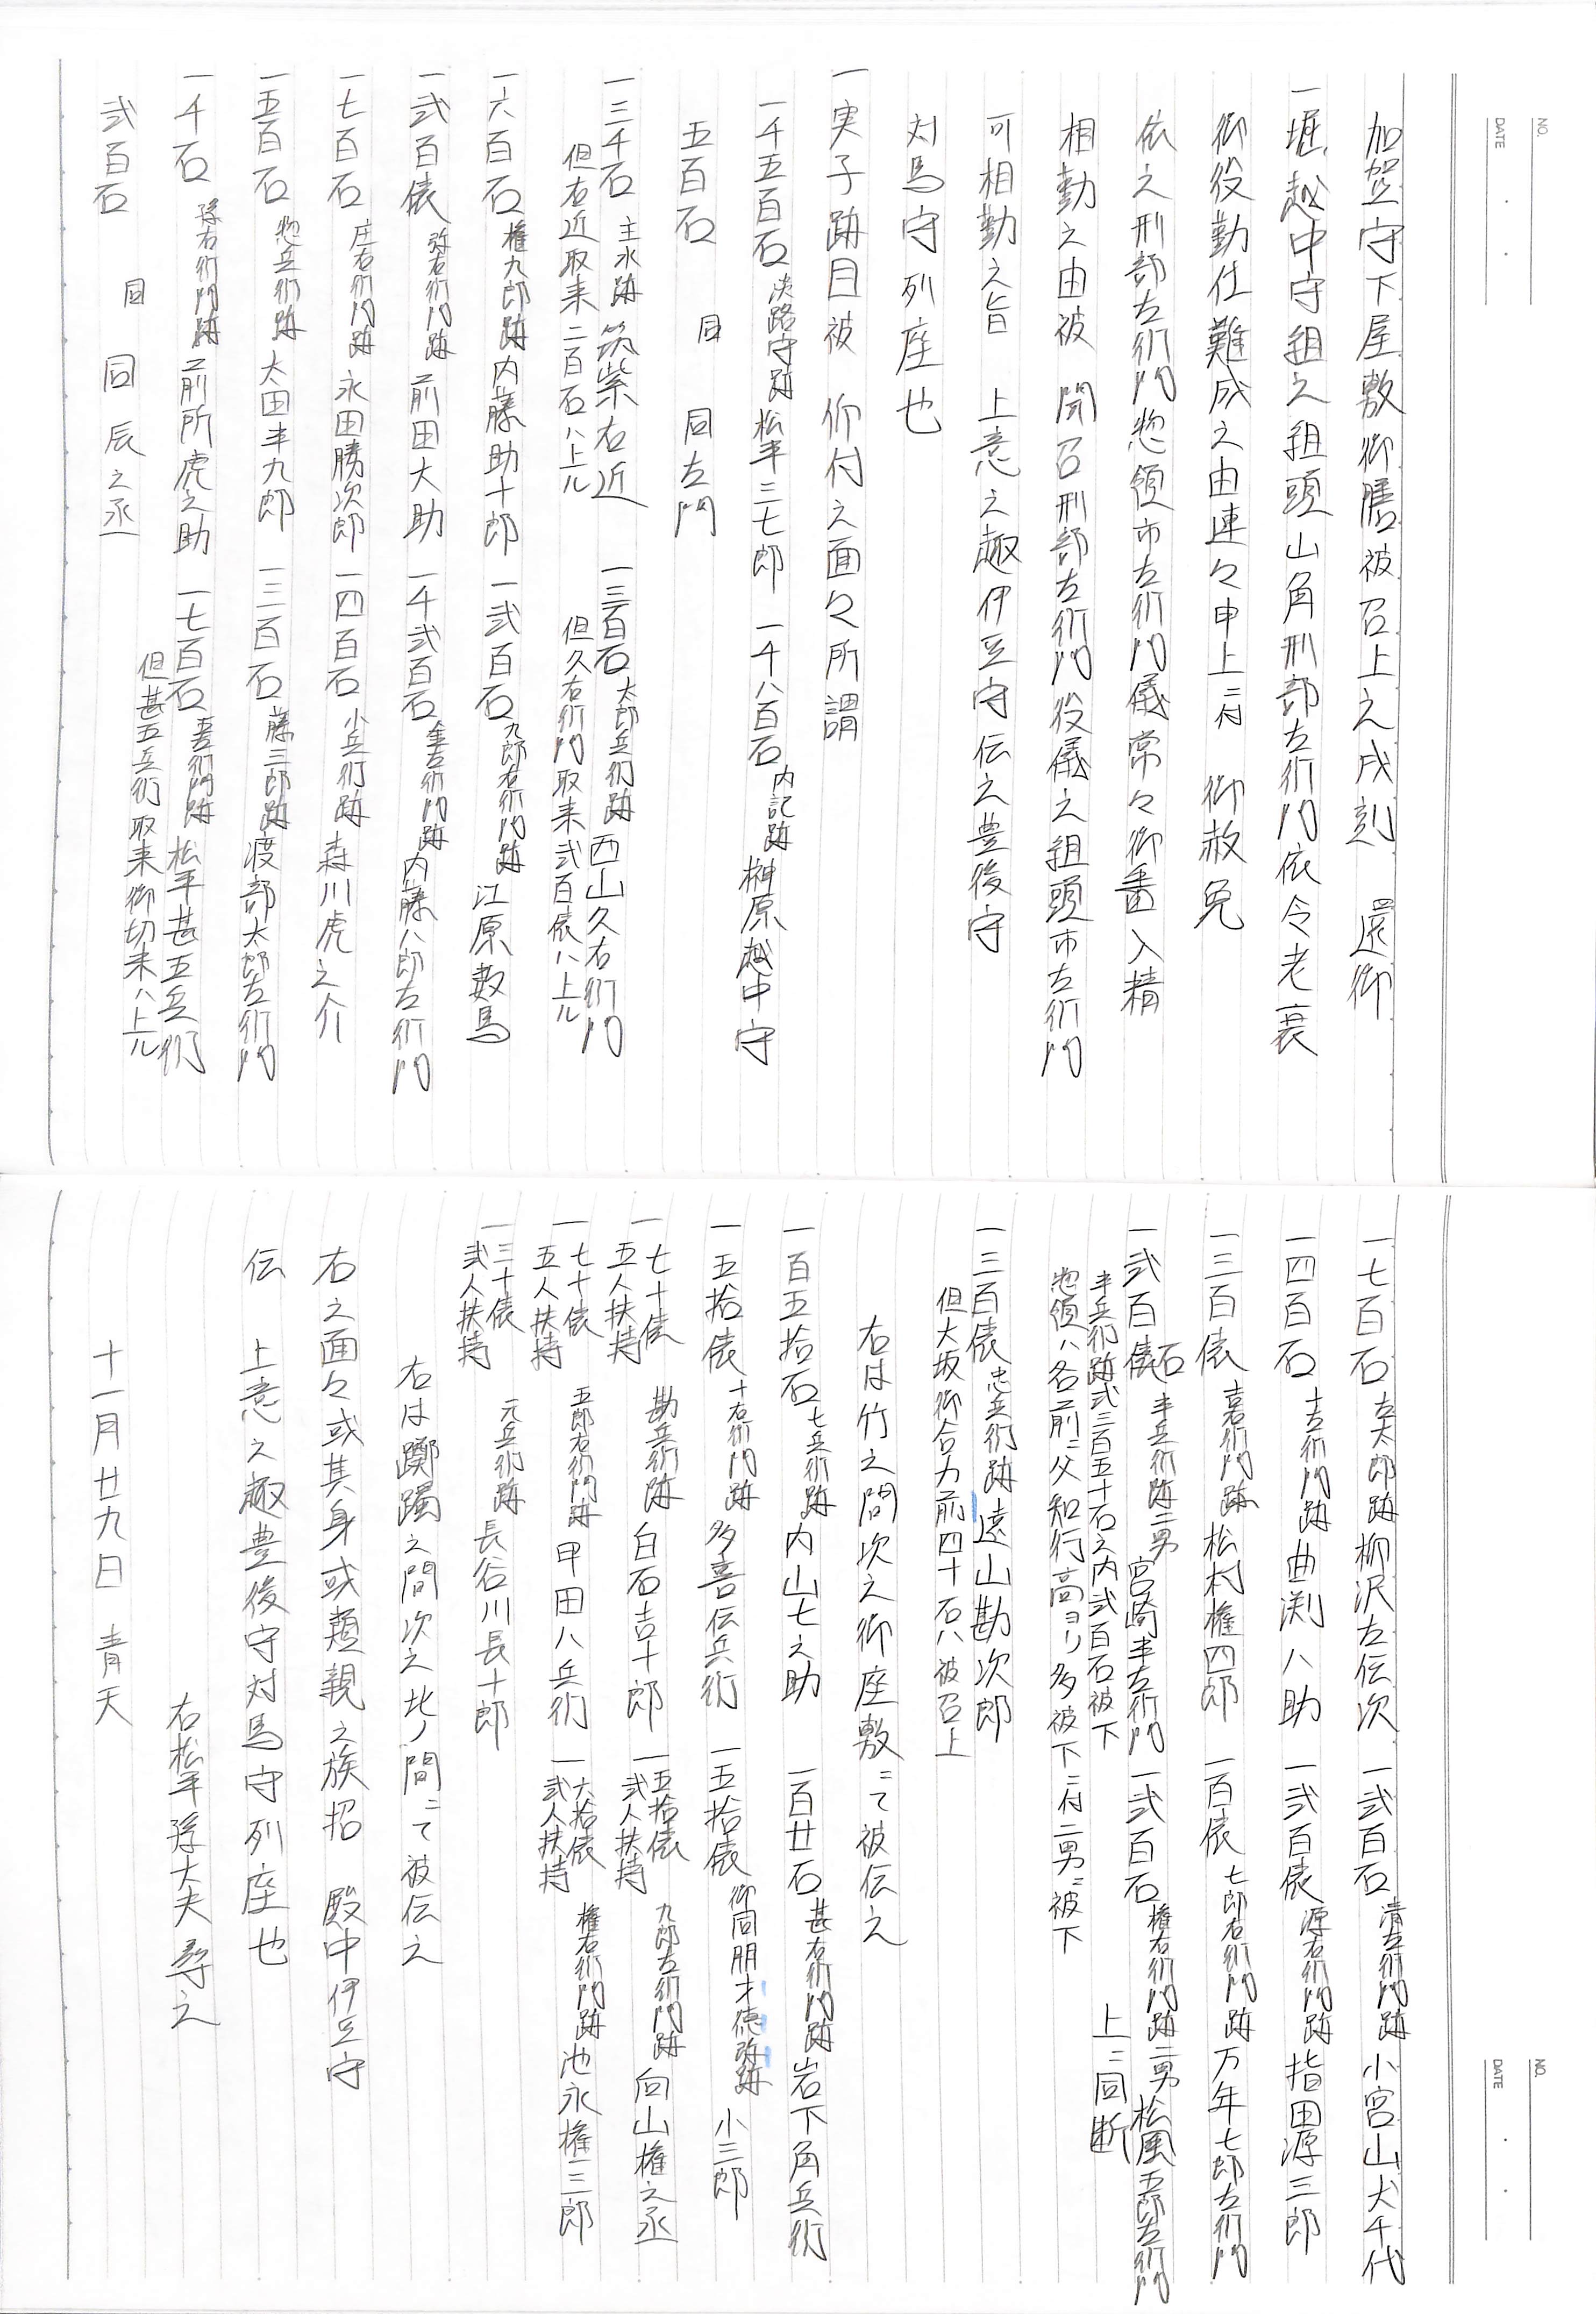 NO.
DATE
加賀守下屋敷御膳被召上之戌刻　還御
一堀越中守組之組頭山角刑部左衛門依令老衰
御役勤仕難成之由連々申上ニ付　御赦免
依之刑部左衛門惣領市左衛門儀常々御番入精
相勤之由被　聞召刑部左衛門役儀之組頭市左衛門
可相勤之旨　上意之趣伊豆守伝之豊後守
対馬守列座也
一実子跡目被　仰付之面々所謂
一千五百石 淡路守跡 松平三七郎 一千八百石 内記跡 榊原越中守
五百石　同　同左門
一三千石 主水跡 筑紫右近 一三百石 太郎兵衛跡 西山久右衛門
但右近取来二百石ハ上ル 但久右衛門取来弐百俵ハ上ル
一六百石 権九郎跡 内藤助十郎 一弐百石 九郎右衛門跡 江原数馬
一弐百俵 弥右衛門跡 前田大助 一千弐百石 金左衛門跡 内藤八郎左衛門
一七百石 庄右衛門跡 永田勝次郎 一四百石 小兵衛跡 森川虎之介
一五百石 惣兵衛跡 太田半九郎 一三百石 藤三郎跡 渡部太郎左衛門
一千石 孫右衛門跡 前所虎之助 一七百石 吉左衛門跡 松平甚五兵衛
但甚五兵衛取来御切来ハ上ル
弐百石　同　同辰之丞
NO.
DATE
一七百石 左太郎跡 柳沢左伝次 一弐百石 清左衛門跡 小宮山犬千代
一四百石 十左衛門跡 曲渕八助 一弐百俵 源右衛門跡 指田源三郎
一三百俵 嘉右衛門跡 松村権四郎 一百俵 七郎右衛門跡 万年七郎左衛門
一弐百俵石 半兵衛跡二男 宮崎半左衛門 一弐百石 権右衛門跡二男 松風五郎左衛門
半兵衛跡弐三百五十石之内弐百石被下　上ニ同断
惣領ハ名前ニ父知行高ヨリ多被下ニ付二男ニ被下
一三百俵 忠兵衛跡 遠山勘次郎
但大坂御合力前四十石ハ被召上
右は竹之間次之御座敷ニて被伝之
一百五拾石 七兵衛跡 内山七之助 一百廿石 甚右衛門跡 岩下角兵衛
一五拾俵 十右衛門跡 多喜伝兵衛 一五拾俵 御同朋才徳弥跡 小三郎
一七十俵五人扶持 勘兵衛跡 白石吉十郎 一五拾俵弐人扶持 九郎左衛門跡 向山権之丞
一七十俵五人扶持 五郎右衛門跡 甲田八兵衛 一六拾俵弐人扶持 権右衛門跡 池永権三郎
一三十俵弐人扶持 元兵衛跡 長谷川長十郎
右は躑躅之間次之北ノ間ニて被伝之
右之面々或其身或類親之族招　殿中伊豆守
伝　上意之趣豊後守対馬守列座也
右松平孫大夫尋之
十一月廿九日　青天